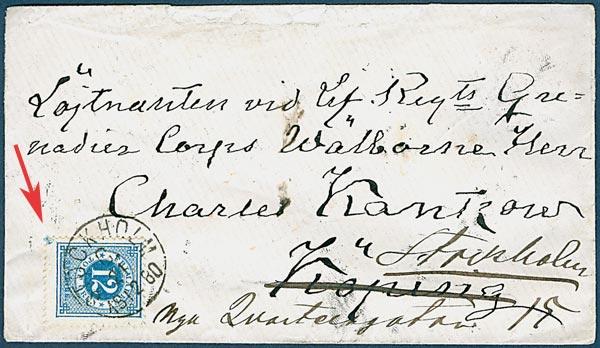 Löjtnanten vid Lif Regts Gre=
nadier Corps Wälborne Herr
Charles Kantzow
Köping Stockholm
Nya Qvartersgatan 15
STOCKHOLM
12